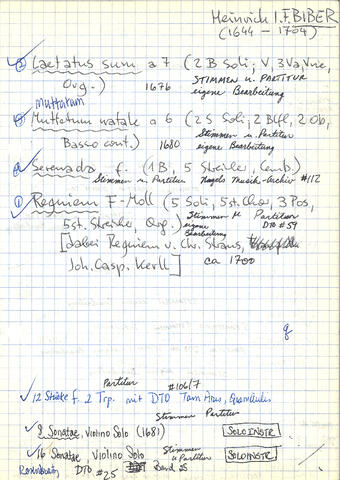 Heinrich I. F. BIBER
(1644 – 1704)
③ Laetatus sum a 7 (2 B Soli; V, 3 Va, Vne,
Org.) 1676 STIMMEN u. PARTITUR
eigene Bearbeitung
Muttetum
Muttetum natale a 6 (2 S Soli; 2 Blfl, 2 Ob,
Stimmen u. Partitur
Basso cont.) 1680 eigene Bearbeitung
Serenada f. (1 B, 5 Streicher, Cemb.)
Stimmen u. Partitur Nagels Musik-Archiv #112
① Requiem F-Moll (5 Soli, 5st. Chor, 3 Pos,
Stimmen Partitur
5 st. Streicher, Org.) eigene DTO #59
Bearbeitung
[dabei Requiem v. Chr. Straus,
Joh. Casp. Kerll] ca 1700
Partitur #106/7
✓ 12 Stücke f. 2 Trp. mit DTO
Stimmen Partitur
✓ 9 Sonatae, Violino Solo (1681) SOLOINSTR.
✓ 16 Sonatae, Violino Solo Stimmen u Partitur SOLOINSTR.
DTO #25 Band 25